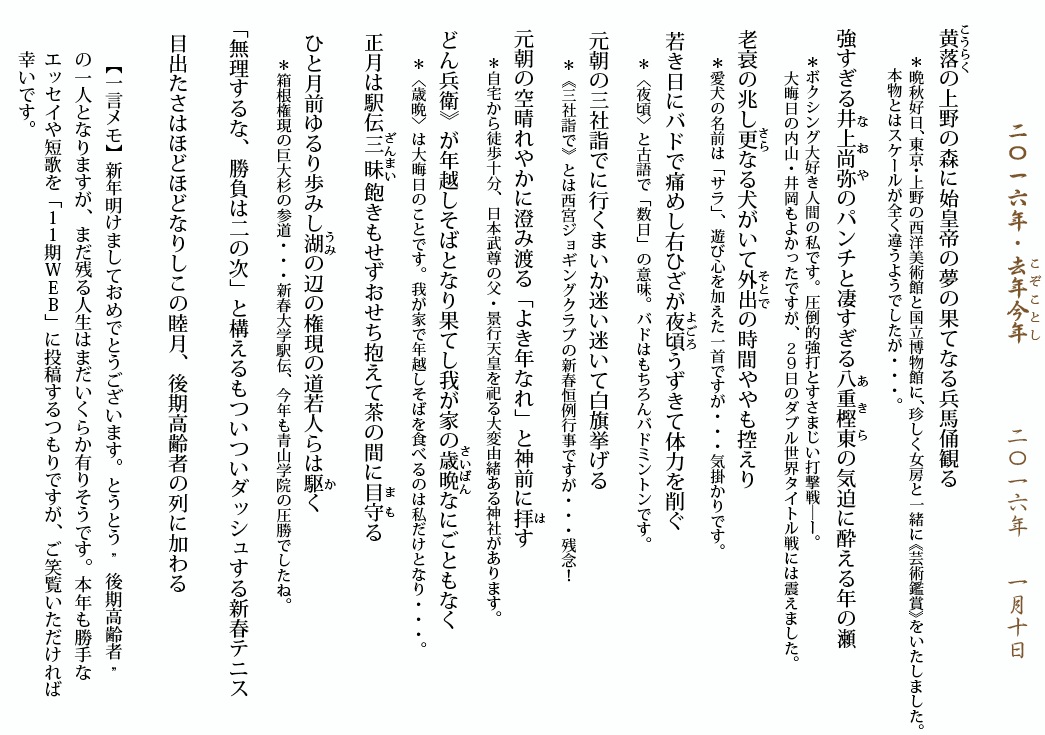 二〇一六年・去年今年　二〇一六年　一月十日
黄落の上野の森に始皇帝の夢の果てなる兵馬俑観る
＊晩秋好日、東京・上野の西洋美術館と国立博物館に、珍しく女房と一緒に《芸術鑑賞》をいたしました。
本物とはスケールが全く違うようでしたが・・・。
強すぎる井上尚弥のパンチと凄すぎる八重樫東の気迫に酔える年の瀬
＊ボクシング大好き人間の私です。圧倒的強打とすさまじい打撃戦——。
大晦日の内山・井岡もよかったですが、２９日のダブル世界タイトル戦には震えました。
老衰の兆し更なる犬がいて外出の時間ややも控えり
＊愛犬の名前は「サラ」、遊び心を加えた一首ですが・・・気掛かりです。
若き日にバドで痛めし右ひざが夜頃うずきて体力を削ぐ
＊〈夜頃〉と古語で「数日」の意味。バドはもちろんバドミントンです。
元朝の三社詣でに行くまいか迷い迷いて白旗挙げる
＊《三社詣で》とは西宮ジョギングクラブの新春恒例行事ですが・・・残念！
元朝の空晴れやかに澄み渡る「よき年なれ」と神前に拝す
＊自宅から徒歩十分、日本武尊の父・景行天皇を祀る大変由緒ある神社があります。
どん兵衛》が年越しそばとなり果てし我が家の歳晩なにごともなく
＊〈歳晩〉は大晦日のことです。我が家で年越しそばを食べるのは私だけとなり・・・。
正月は駅伝三昧飽きもせずおせち抱えて茶の間に目守る
ひと月前ゆるり歩みし湖の辺の権現の道若人らは駆く
＊箱根権現の巨大杉の参道・・・新春大学駅伝、今年も青山学院の圧勝でしたね。
「無理するな、勝負は二の次」と構えるもついついダッシュする新春テニス
目出たさはほどほどなりしこの睦月、後期高齢者の列に加わる
【一言メモ】新年明けましておめでとうございます。とうとう〝後期高齢者〟
の一人となりますが、まだ残る人生はまだいくらか有りそうです。本年も勝手な
エッセイや短歌を「１１期ＷＥＢ」に投稿するつもりですが、ご笑覧いただければ
幸いです。